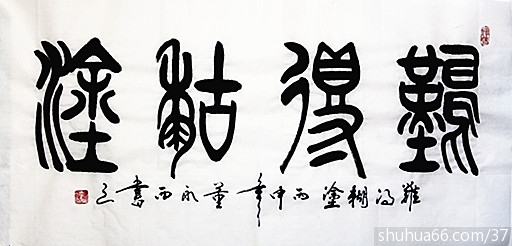 難得糊塗
難得糊塗丙申年董永書
shuhua66.com/37